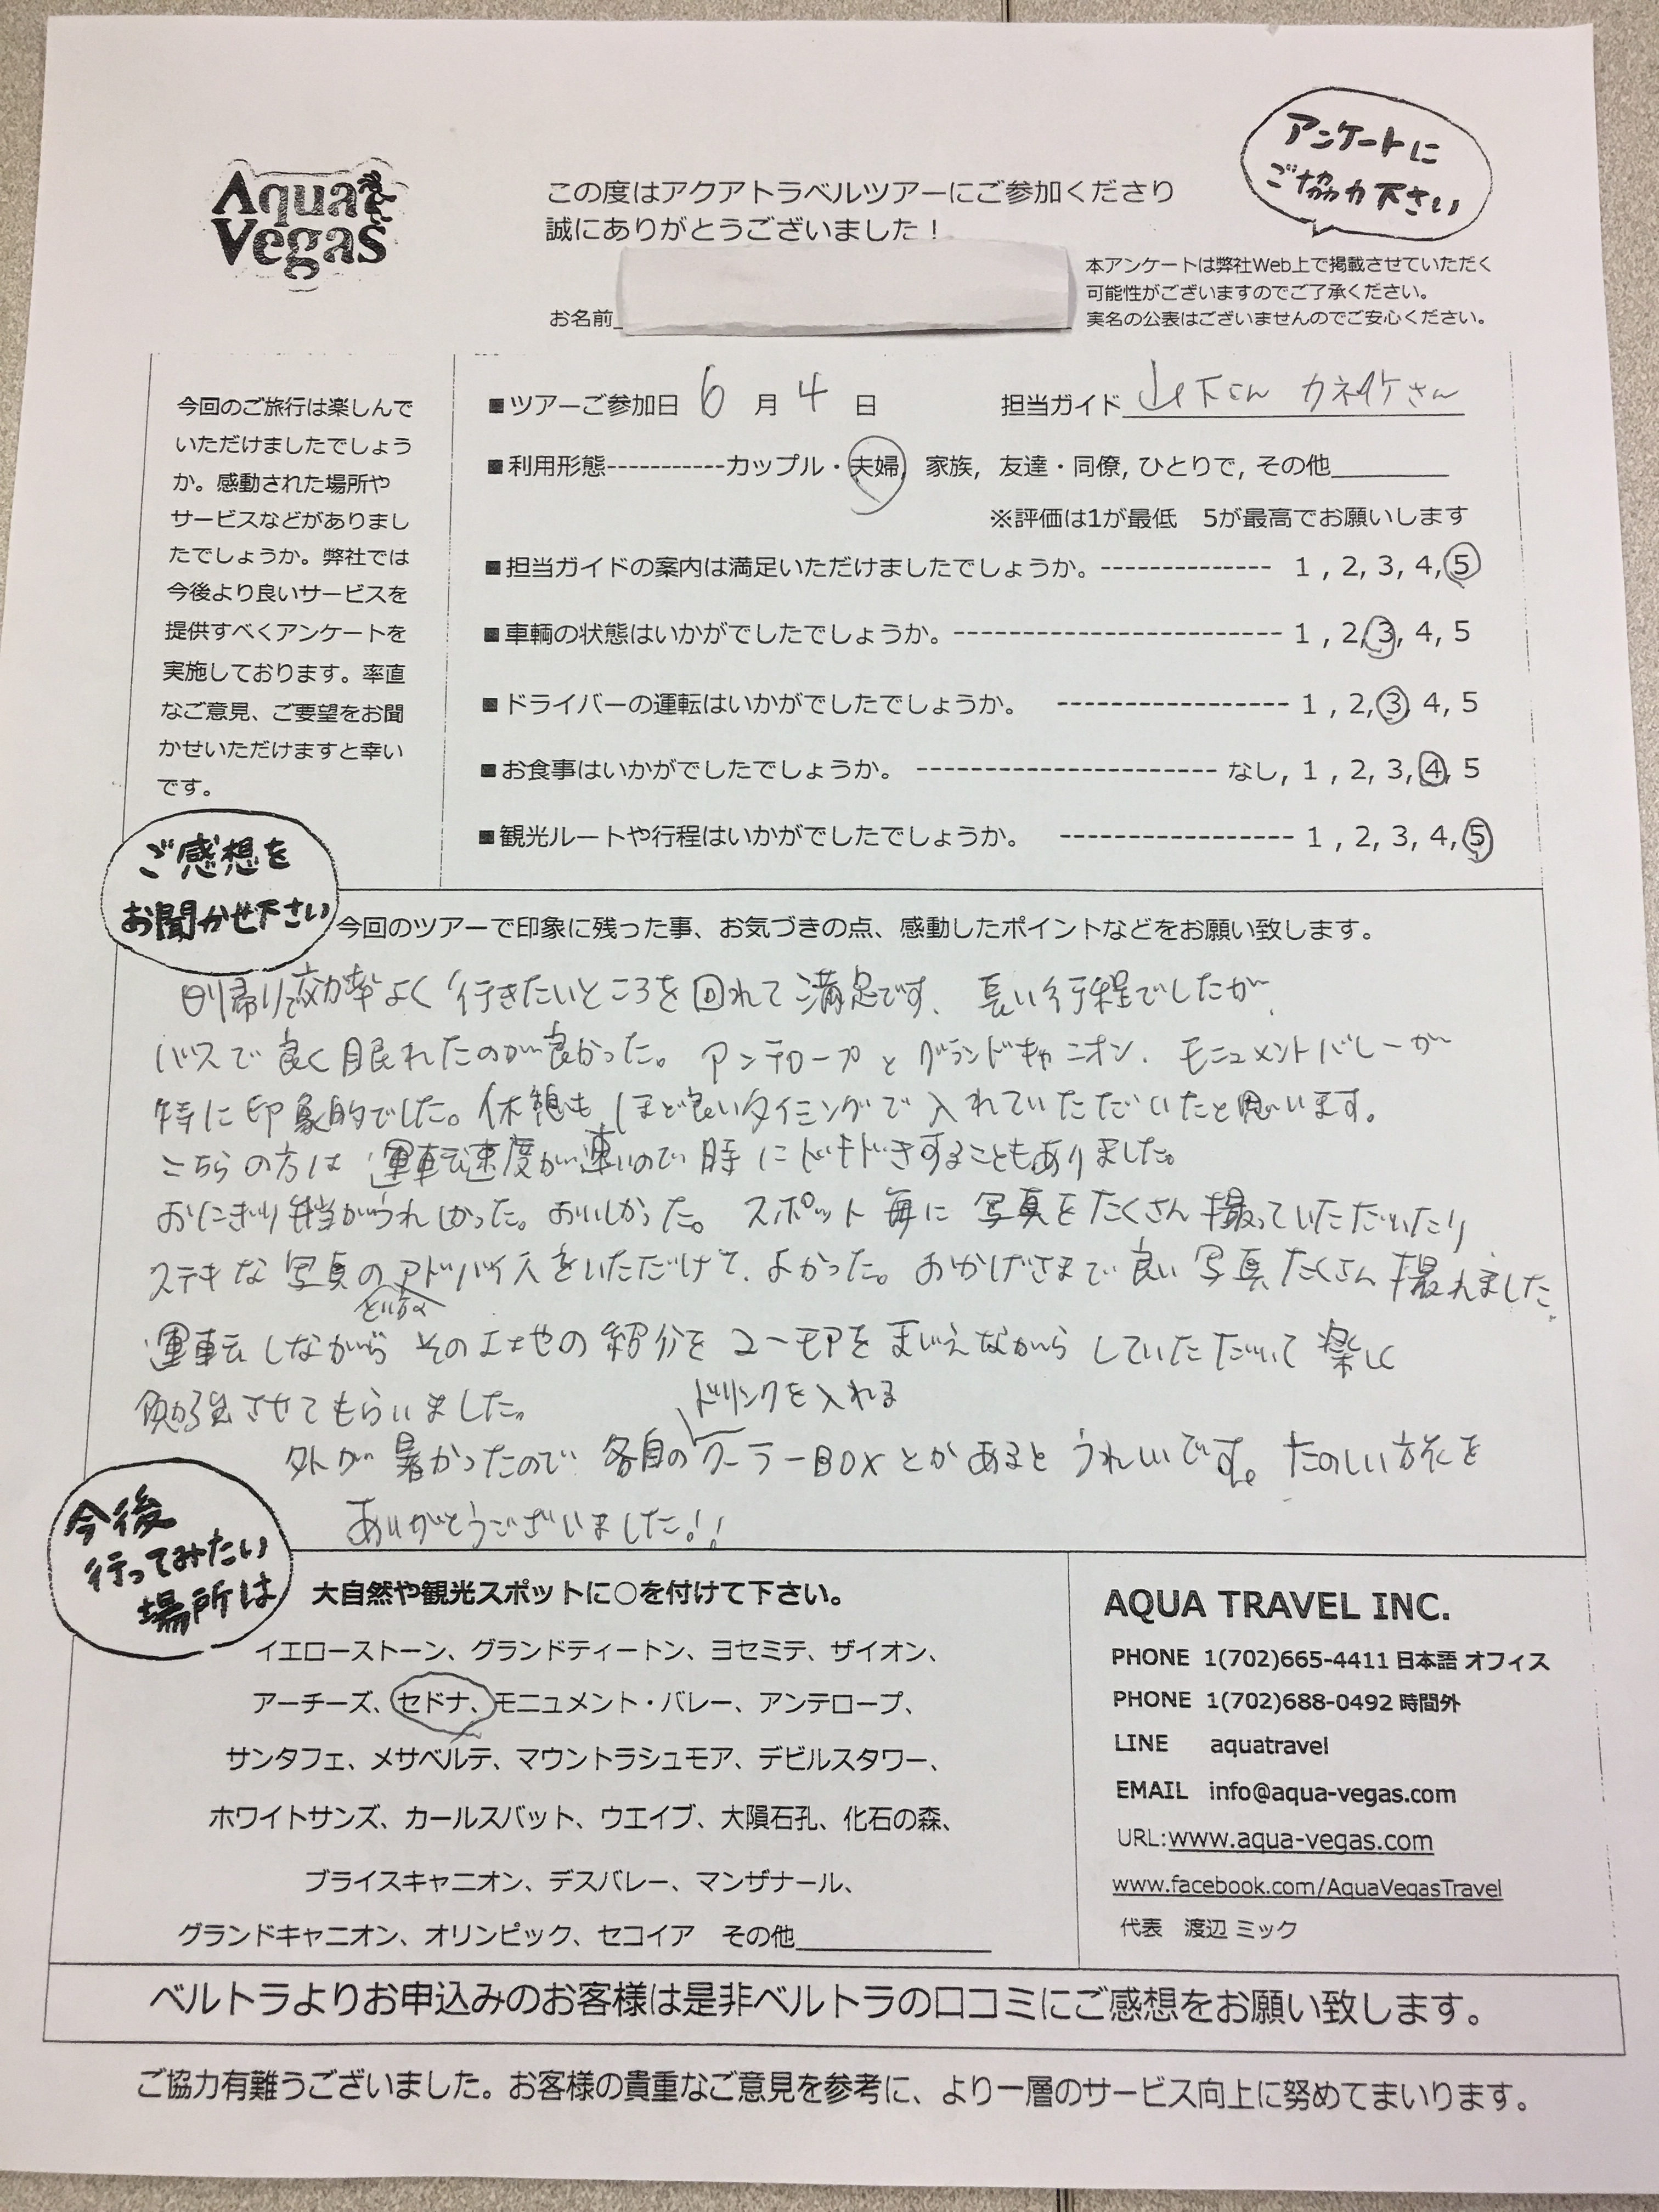 Aqua Vegas
アンケートに
ご協力下さい
この度はアクアトラベルツアーにご参加くださり
誠にありがとうございました!
お名前
本アンケートは弊社Web上で掲載させていただく
可能性がございますのでご了承ください。
実名の公表はございませんのでご安心ください。
今回のご旅行は楽しんで
いただけましたでしょう
か。感動された場所や
サービスなどがありまし
たでしょうか。弊社では
今後より良いサービスを
提供すべくアンケートを
実施しております。率直
なご意見、ご要望をお聞
かせいただけますと幸い
です。
■ツアーご参加日 6 月 4 日 担当ガイド 山下さん カネイケさん
■利用形態-----------カップル・夫婦, 家族, 友達・同僚, ひとりで, その他
※評価は1が最低 5が最高でお願いします
■担当ガイドの案内は満足いただけましたでしょうか。-------------- 1 , 2, 3, 4, 5
■車輌の状態はいかがでしたでしょうか。------------------------ 1 , 2, 3, 4, 5
■ドライバーの運転はいかがでしたでしょうか。 ----------------- 1 , 2, 3, 4, 5
■お食事はいかがでしたでしょうか。 ---------------------- なし, 1 , 2, 3, 4, 5
■観光ルートや行程はいかがでしたでしょうか。 ----------------- 1 , 2, 3, 4, 5
ご感想を
お聞かせ下さい
今回のツアーで印象に残った事、お気づきの点、感動したポイントなどをお願い致します。
日り帰りで効率よく行きたいところを回れて満足です、長い行程でしたが、
バスで良く眠れたのが良かった。アンテロープとグランドキャニオン、モニュメントバレーが
特に印象的でした。休憩もほど良いタイミングで入れていただいたと思います。
こちらの方は運転速度が速いので時にドキドキすることもありました。
おにぎり弁当がうれしかった。おいしかった。スポット毎に写真をたくさん撮っていただいたり
ステキな写真のアドバイスをいただけて、よかった。おかげさまで良い写真たくさん撮れました。
とり方の
運転しながらその土地の紹介をユーモアをまじえながらしていただいて楽しく
勉強させてもらいました。
ドリンクを入れる
外が暑かったので各自のクーラーBOXとかあるとうれしいです。たのしい旅を
ありがとうございました!!
今後
行ってみたい
場所は
大自然や観光スポットに○を付けて下さい。
イエローストーン、グランドティートン、ヨセミテ、ザイオン、
アーチーズ、セドナ、モニュメント・バレー、アンテロープ、
サンタフェ、メサベルテ、マウントラシュモア、デビルスタワー、
ホワイトサンズ、カールスバット、ウエイブ、大隕石孔、化石の森、
ブライスキャニオン、デスバレー、マンザナール、
グランドキャニオン、オリンピック、セコイア その他
AQUA TRAVEL INC.
PHONE 1(702)665-4411 日本語 オフィス
PHONE 1(702)688-0492 時間外
LINE aquatravel
EMAIL info@aqua-vegas.com
URL:www.aqua-vegas.com
www.facebook.com/AquaVegasTravel
代表 渡辺 ミック
ベルトラよりお申込みのお客様は是非ベルトラの口コミにご感想をお願い致します。
ご協力有難うございました。お客様の貴重なご意見を参考に、より一層のサービス向上に努めてまいります。